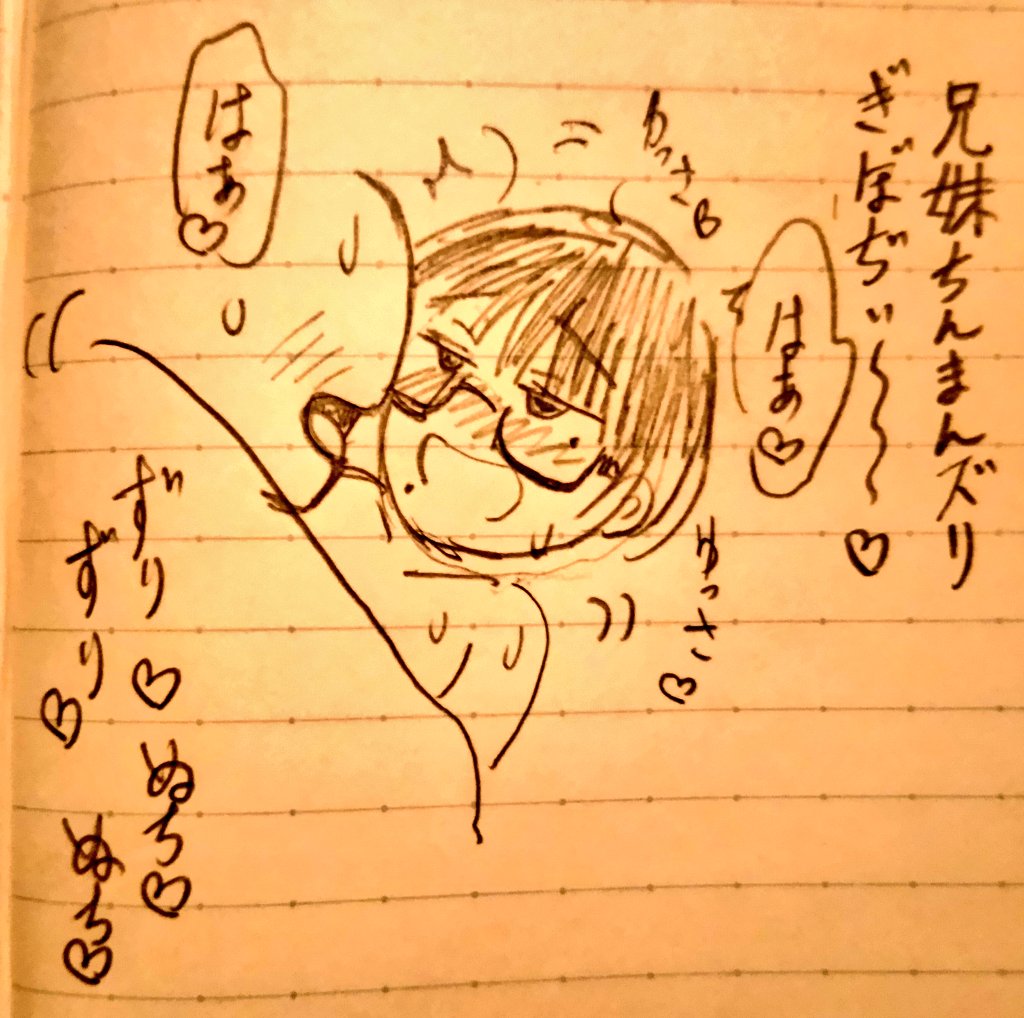 兄妹ちんまんズリ
ぎぼぢぃ〜〜〜♡
ゆっさ♡
はぁ♡
はぁ♡
ゆっさ♡
ずり♡ぬち♡
ずり♡ぬち♡